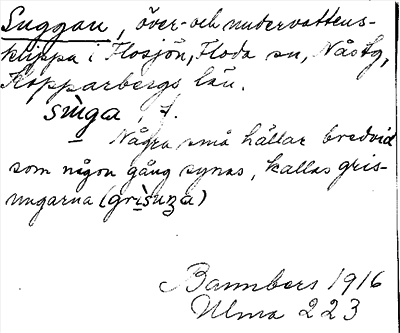 Suggan, över- och undervattens-
klippa i Flosjön, Floda sn, Nås tg,
Kopparbergs län.
sùga, f.
Några små hällar bredvid
som någon gång synas, kallas gris-
ungarna (grìsuŋa)
Bannbers 1916
Ulma 223